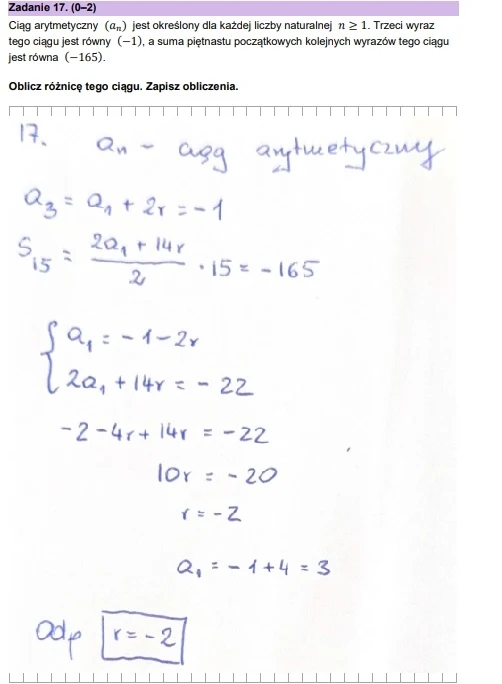 Zadanie 17. (0–2)
Ciąg arytmetyczny (aₙ) jest określony dla każdej liczby naturalnej n ≥ 1. Trzeci wyraz
tego ciągu jest równy (−1), a suma piętnastu początkowych kolejnych wyrazów tego ciągu
jest równa (−165).
Oblicz różnicę tego ciągu. Zapisz obliczenia.
17. aₙ - ciąg arytmetyczny
a₃ = a₁ + 2r = -1
S₁₅ = (2a₁ + 14r)/2 · 15 = -165
{ a₁ = -1-2r
2a₁ + 14r = -22
-2-4r+14r = -22
10r = -20
r = -2
a₁ = -1+4 = 3
Odp r = -2